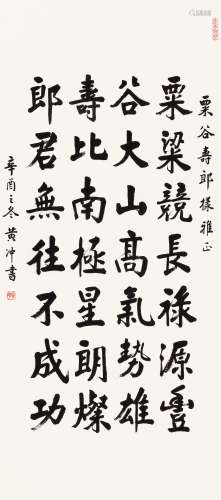 粟谷壽郎樣雅正
粟粱競長祿源豊
谷大山髙氣勢雄
壽比南極星朗燦
郎君無往不成功
辛酉之冬黃冲書